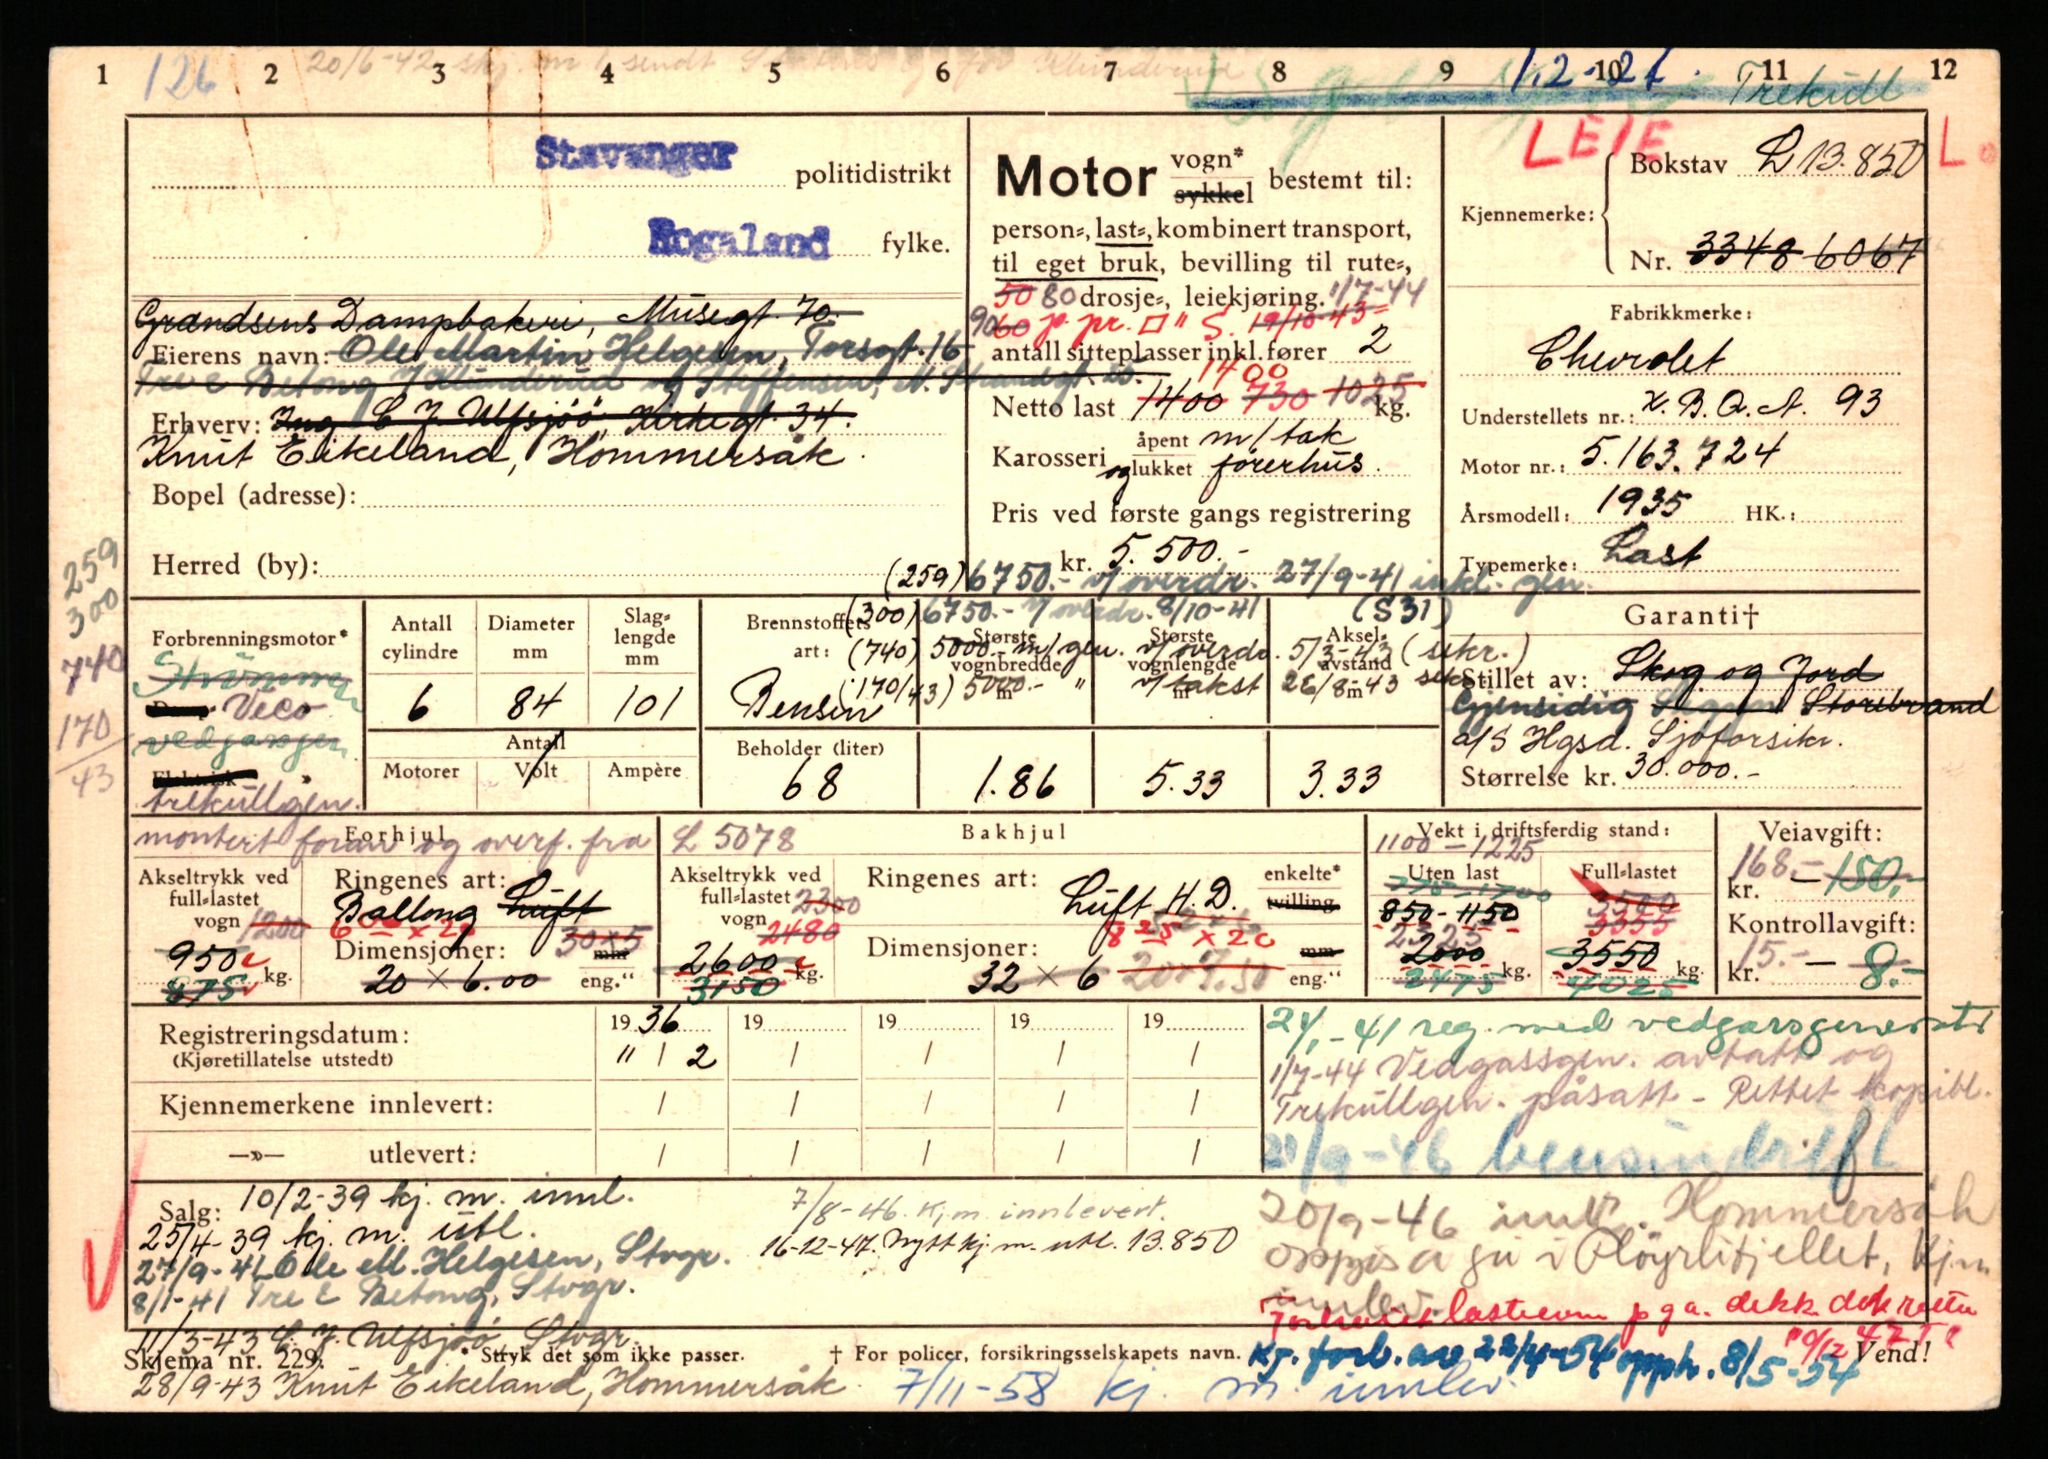 1 2 3 4 5 6 7 8 9 10 11 12
126
20/6-42
Trekull
Stavanger politidistrikt
Rogaland fylke.
Grandsens Dampbakeri, Musegt. 70.
Eierens navn: Ole Martin Helgesen, Torsgt. 16
Tre & Betong
Erhverv: Ing. C. J. Ulfsjöö, Kirkegt. 34.
Knut Eikeland, Hommersåk.
Bopel (adresse):
Herred (by):
Motor vogn* sykkel bestemt til:
person-, last-, kombinert transport,
til eget bruk, bevilling til rute-,
50 80 drosje-, leiekjøring. 1/7-44
90 60 p. pr. 19/10-43
antall sitteplasser inkl. fører 2
1400
Netto last 1400 730 1025 kg.
Karosseri åpent m/tak
og lukket førerhus.
Pris ved første gangs registrering
kr. 5.500.-
(259) 6750.- v/overdr. 27/9-41 inkl. gen.
(300) 6750.- v/overdr. 8/10-41 (S31)
(740) 5000.- m/gen. v/overdr. 5/3-43 (sekr.)
(170/43) 5000.- " v/takst 26/8-43
LEIE
L.
Kjennemerke:
Bokstav L 13.850
Nr. 3348 6067
Fabrikkmerke:
Chevrolet
Understellets nr.: X.B.Q.A. 93
Motor nr.: 5.163.724
Årsmodell: 1935 HK.:
Typemerke: Last
259
300
740
170
43
Forbrenningsmotor*
Strömmen
Veco
vedgassgen
Elektrisk "
trekullgen.
Antall cylindre
6
Diameter mm
84
Slaglengde mm
101
Antall
Motorer Volt Ampère
Brennstoffets art:
Bensin
Beholder (liter)
68
Største vognbredde m
1.86
Største vognlengde m
5.33
Akselavstand m
3.33
Garanti†
Stillet av: Skog og Jord
Gjensidig Storebrand
a/S Hgsd. Sjøforsikr.
Størrelse kr. 30.000.-
montert foran og overf. fra L 5078
Forhjul
Akseltrykk ved full-lastet vogn 1200
950
875 kg.
Ringenes art:
Ballong Luft
600 x 20
Dimensjoner: 30 x 5 mm
20 x 6.00 eng."
Bakhjul
Akseltrykk ved full-lastet vogn 2300
2480
2600 kg.
3150
Ringenes art: enkelte*
Luft H.D. tvilling
825 x 20
Dimensjoner: mm
32 x 6 20 x 7.50 eng."
Vekt i driftsferdig stand:
1100 - 1225
Uten last
775 - 1700
850 - 1150
2325
2000 kg.
2475
Full-lastet
3500
3355
3550 kg.
4025
Veiavgift:
168.-
kr. - 150.-
Kontrollavgift:
15.-
kr. - 8.-
Registreringsdatum:
(Kjøretillatelse utstedt)
19 36 19 19 19 19
11/2 / / / /
Kjennemerkene innlevert: / / / / /
—»— utlevert: / / / / /
-41 reg. med vedgassgenerator
1/7-44 Vedgassgen. avtatt og
Trekullgen. påsatt - Rettet kopibl.
/9-46 bensindrift
Salg: 10/2-39 kj. m. innl.
25/4-39 kj. m. utl.
27/9-41 Ole M. Helgesen, Stvgr.
8/1-41 Tre & Betong, Stvgr.
11/3-43 C. J. Ulfsjöö, Stvgr.
28/9-43 Knut Eikeland, Hommersåk.
7/8-46. Kj.m. innlevert.
16-12-47. Nytt kj. m. utl. 13.850
20/9-46 Hommersåk
kj.m
innlev.
lasteevn p g a. dekk
Kj. forb. av 22/4-54 opph. 8/5-54
7/11-58 kj. m. innlev.
Skjema nr. 229.
* Stryk det som ikke passer.
† For politier, forsikringsselskapets navn.
Vend!